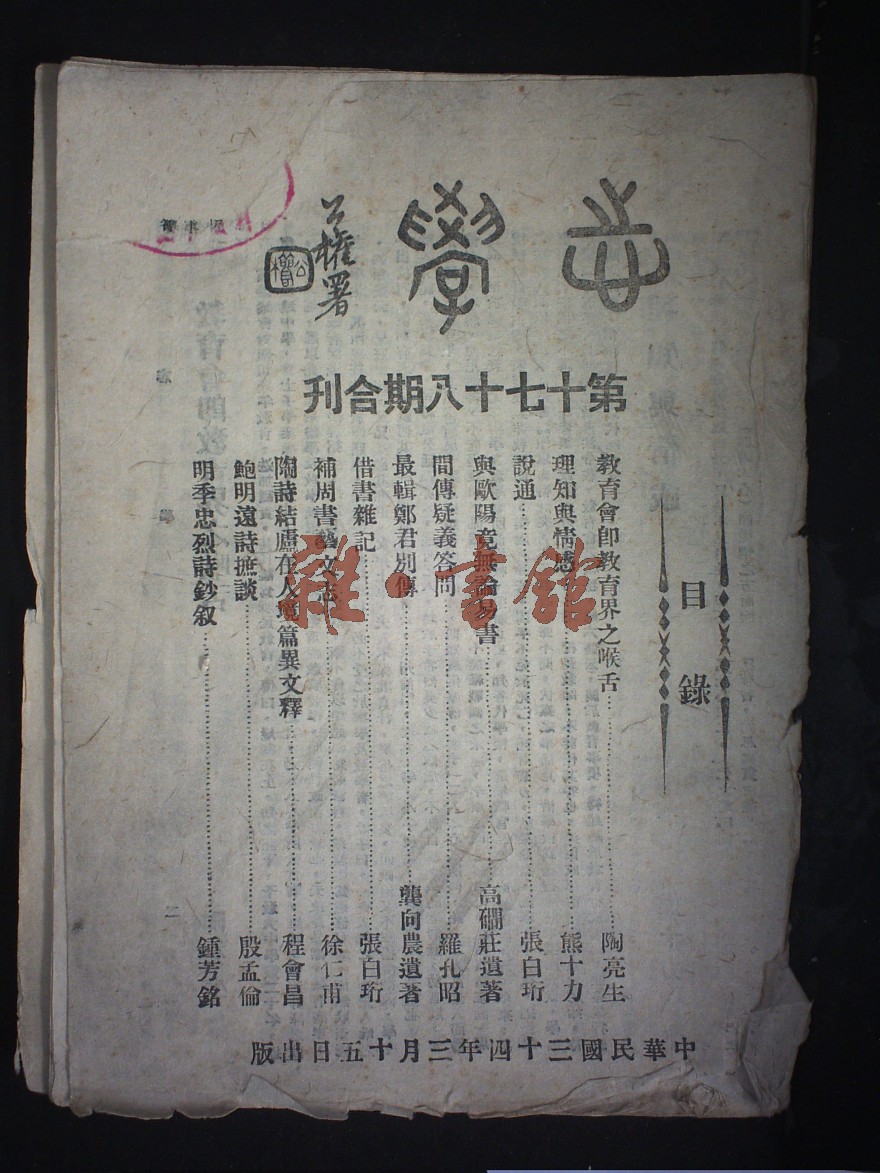 志學
公權署
公權
第十七十八期合刊
目錄
教育會卽教育界之喉舌……陶亮生
理知與情感……熊十力
說通……張白珩
與歐陽竟無論易書……高磵莊遺著
間傳疑義答問……羅孔昭
最輯鄭君別傳……龔向農遺著
借書雜記……張白珩
補周書藝文志……徐仁甫
陶詩結廬在人境篇異文釋……程會昌
鮑明遠詩摭談……殷孟倫
明季忠烈詩鈔叙……鍾芳銘
中華民國三十四年三月十五日出版
雜·書館